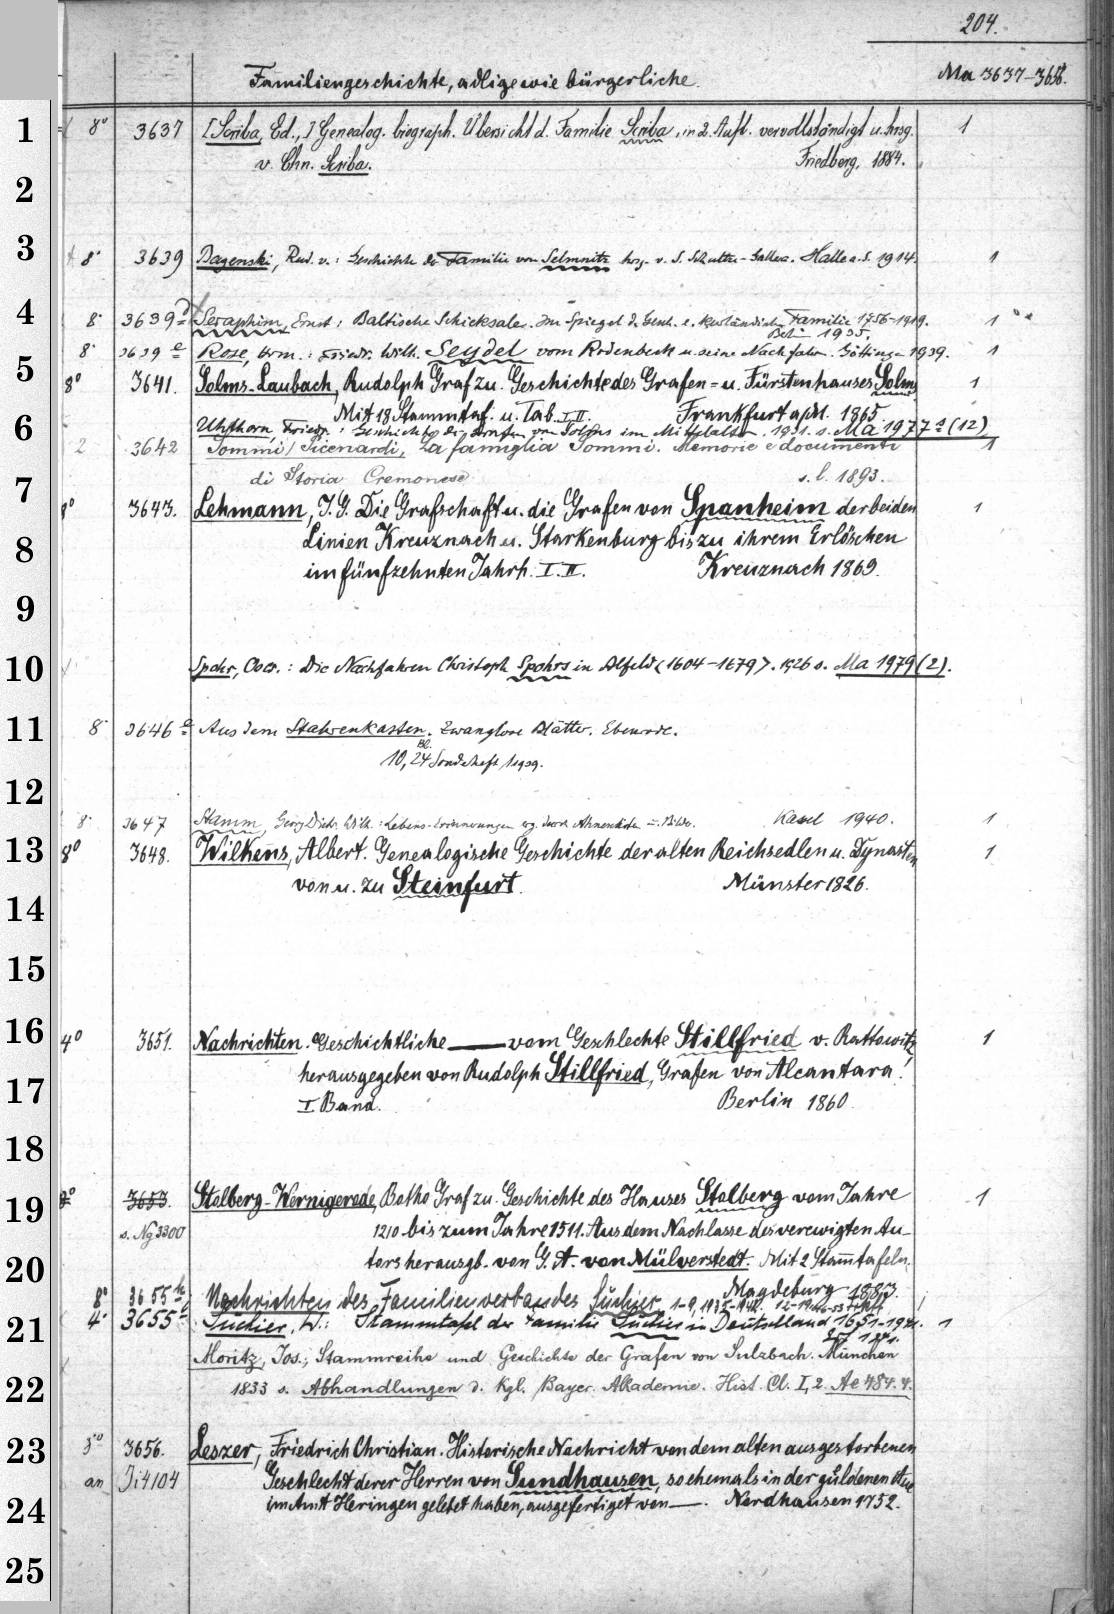 204.
Familiengeschichte, adlige wie bürgerliche. Ma 3637-3656.
1 8° 3637 [Scriba, Ed.,] Genealog. biograph. Übersicht d. Familie Scriba, in 2. Aufl. vervollständigt u. hrsg. 1
v. Chn. Scriba. Friedberg, 1884.
2
3 8° 3639 Bagenski, Rud. v.: Geschichte der Familie von Selmnitz hrsg. v. S. Halle a. S. 1914. 1
4 8° 3639 Seraphim, Ernst: Baltische Schicksale. Im Spiegel d. Gesch. e. kurländischen Familie 1756-1919. 1
Berlin 1935.
8° 3639 e Rose, Herm.: Friedr. Wilh. Seydel vom Rodenbeck u. seine Nachfahren. Göttingen 1939. 1
5 8° 3641. Solms-Laubach, Rudolph Graf zu. Geschichte des Grafen- u. Fürstenhauses Solms 1
Mit 18 Stammtaf. u. Tab. I-II. Frankfurt a/M. 1865
6 Uhlhorn, Friedr.: Geschichte der Grafen von Solms im Mittelalter. 1931. s. Ma 1977 a (12)
2 3642 Sommi Picenardi, La famiglia Sommi. Memorie e documenti 1
di Storia Cremonese s. l. 1893.
7 8° 3643. Lehmann, J. G. Die Grafschaft u. die Grafen von Spanheim der beiden 1
8 Linien Kreuznach u. Starkenburg bis zu ihrem Erlöschen
im fünfzehnten Jahrh. I. II. Kreuznach 1869.
9
10 Spohr, Oscr.: Die Nachfahren Christoph Spohrs in Alfeld (1604-1679). 1926 s. Ma 1979 (2).
11 8° 3646 a Aus dem Stahrenkasten. Zwanglose Blätter. Eberswde.
Bl. 10, 24 Sonderheft, 1939.
12
8° 3647 Stamm, Georg Dietr. Wilh.: Lebens-Erinnerungen erg. durch Ahnenlisten u. Bilder. Kassel 1940. 1
13 8° 3648. Wilkens, Albert. Genealogische Geschichte der alten Reichsedlen u. Dynasten 1
von u. zu Steinfurt. Münster 1826.
14
15
16 4° 3651. Nachrichten. Geschichtliche — vom Geschlechte Stillfried v. Rattowitz 1
herausgegeben von Rudolph Stillfried, Grafen von Alcantara!
17 I Band. Berlin 1860.
18
19 3653. Stolberg-Wernigerode, Botho Graf zu. Geschichte des Hauses Stolberg vom Jahre 1
s. Ng 3300 1210 bis zum Jahre 1511. Aus dem Nachlasse des verewigten Au-
20 tors herausgb. von G. A. von Mülverstedt. Mit 2 Stammtafeln.
Magdeburg 1883.
8° 3655 b Nachrichten des Familienverbandes Suchier 1-9, 1935-1942.
21 4° 3655 Suchier, W.: Stammtafel der Familie Suchier in Deutschland 1
Moritz, Jos.; Stammreihe und Geschichte der Grafen von Sulzbach. München
22 1833 s. Abhandlungen d. Kgl. Bayer. Akademie. Hist. Cl. I, 2. Ae 484. 4.
23 3656. Leszer, Friedrich Christian. Historische Nachricht von dem alten ausgestorbenen
an Ji 4104 Geschlecht derer Herren von Sundhausen, so ehemals in der güldenen Aue
24 im Amt Heringen gelebet haben, ausgefertiget von —. Nordhausen 1752.
25